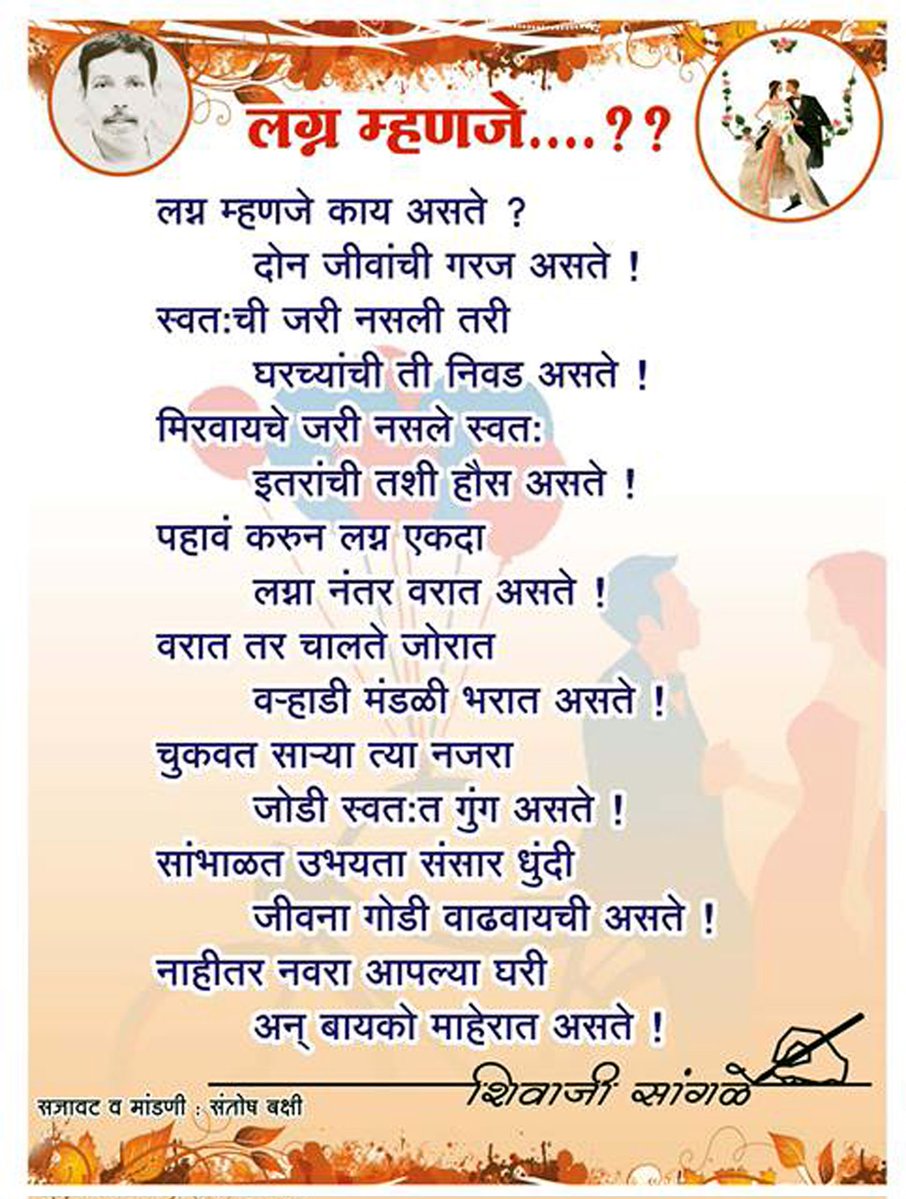 लग्न म्हणजे....??
लग्न म्हणजे काय असते ?
दोन जीवांची गरज असते !
स्वत:ची जरी नसली तरी
घरच्यांची ती निवड असते !
मिरवायचे जरी नसले स्वत:
इतरांची तशी हौस असते !
पहावं करुन लग्न एकदा
लग्ना नंतर वरात असते !
वरात तर चालते जोरात
वऱ्हाडी मंडळी भरात असते !
चुकवत साऱ्या त्या नजरा
जोडी स्वत:त गुंग असते !
सांभाळत उभयता संसार धुंदी
जीवना गोडी वाढवायची असते !
नाहीतर नवरा आपल्या घरी
अन् बायको माहेरात असते !
शिवाजी सांगळे
सजावट व मांडणी : संतोष बक्षी